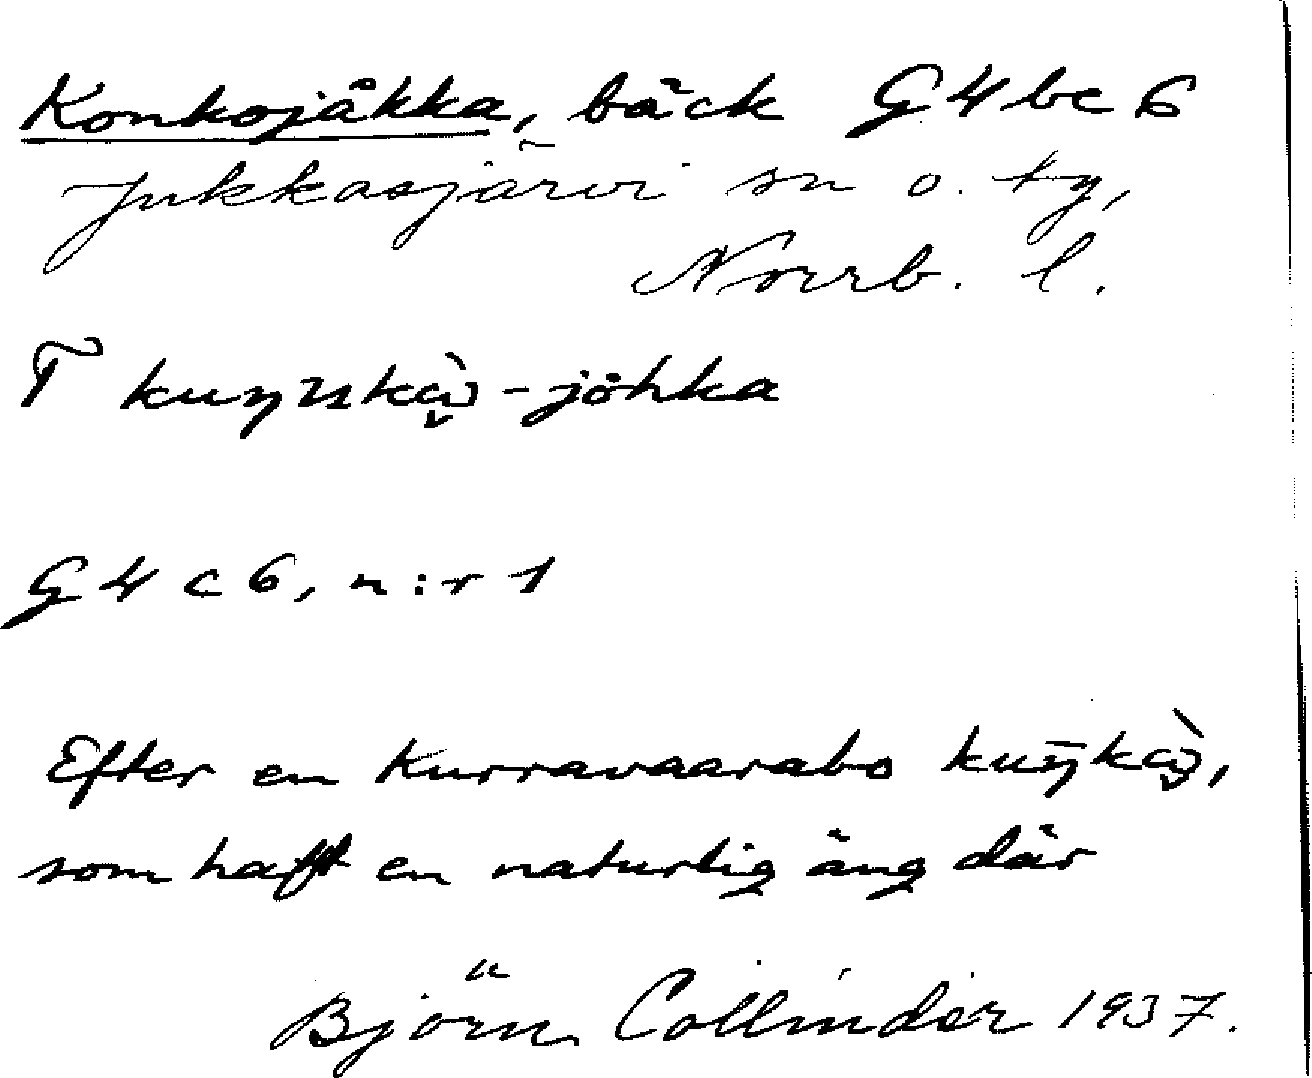 Konkojåkka, bäck G4bc6
Jukkasjärvi sn o. tg,
Norrb. l.
G4c6, n:r 1
Efter en Kurravaarabo
som haft en naturlig äng där
Björn Collinder 1937.